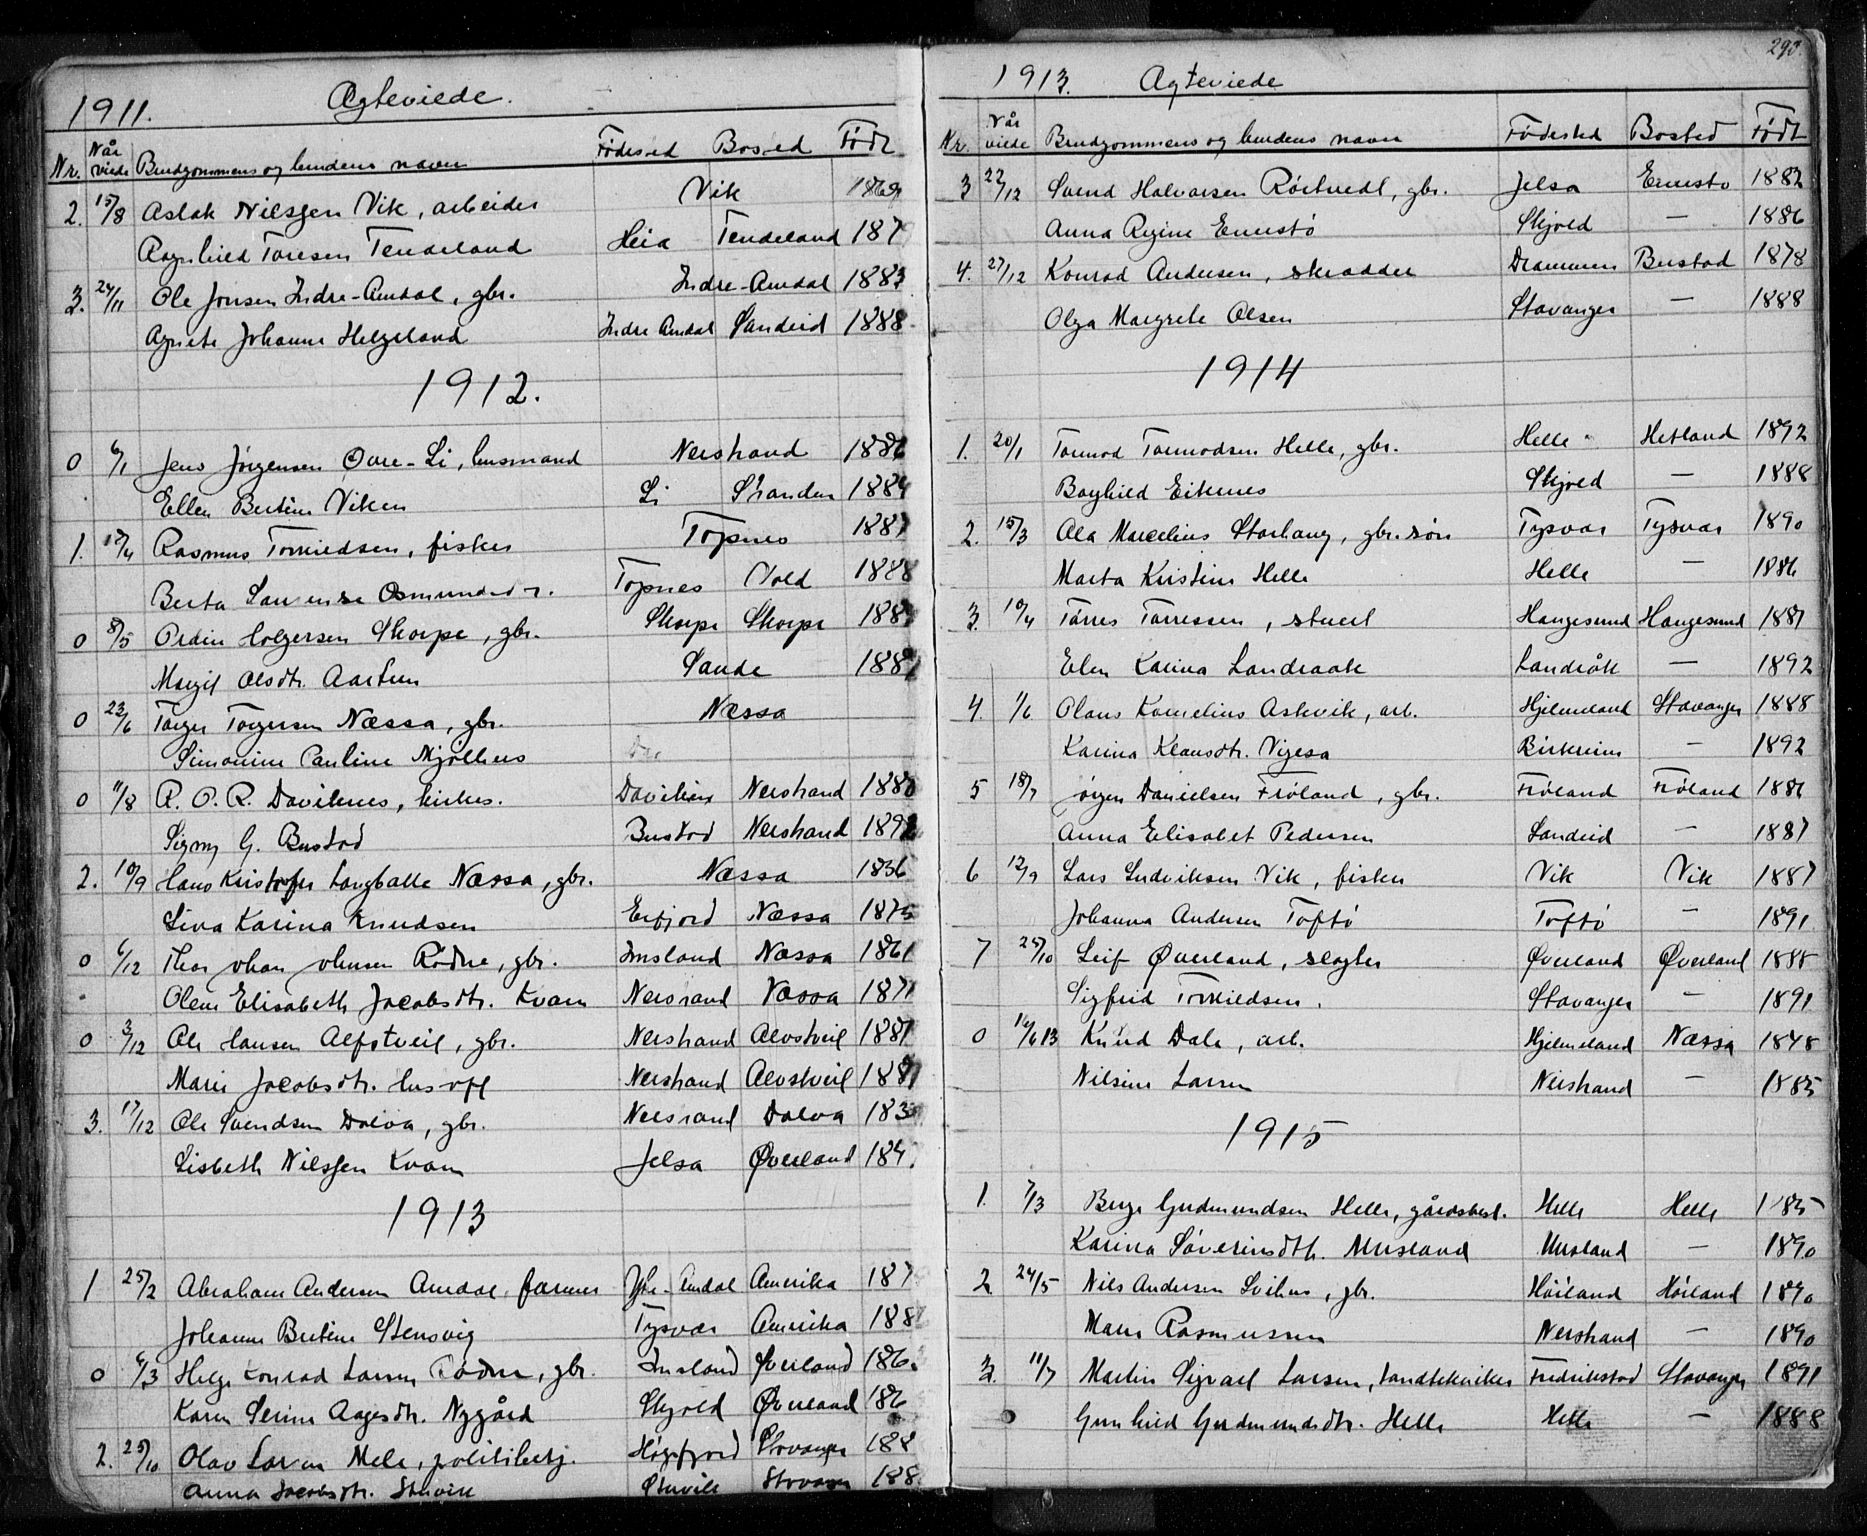 1911. Ægteviede.
Nr. Når viede Brudgommens og brudens navn Födested Bosted Födt
2. 15/8 Aslak Nilssen Vik, arbeider Vik 1869
Ragnhild Toresen Tendeland Heia Tendeland 187
3. 24/11 Ole Jonsen Indre-Amdal, gbr. Indre-Amdal 1883
Agnete Johanne Helgeland Indre Amdal Sandeid 1888
1912.
0 6/1 Jens Jörgensen Övre-Li, husmand Nerstrand 1886
Ellen Bertine Viken Li Stranden 1884
1. 12/4 Rasmus Tormedsen, fisker Topnes 1887
Berta Laurense Osmundsdr. Topnes Vold 1888
0 8/5 Peder Holgersen Skorpe, gbr. Skorpe Skorpe 188
Margit Olsdtr. Aartun Sande 1887
0 23/6 Torger Torgersen Næssa, gbr. Næssa
Simonine Pauline Mjölhus
0 11/8 R. O. R. Daviknes, Daviknes Nerstrand 1880
Signy G. Bustad Bustad Nerstrand 1892
2. 10/9 Hans Kristofer Langballe Næssa, gbr. Næssa 1836
Lina Karina Knudsen Erfjord Næssa 1875
0 6/12 Thor Johan Johnsen Rödne, gbr. Imsland Næssa 1861
Olene Elisabeth Jacobsdtr. Kvam Nerstrand Næssa 1871
0 3/12 Ole Hansen Alfstveit, gbr. Nerstrand Alvstveit 1881
Marie Jacobsdtr. Nerstrand Alvstveit 188
3. 17/12 Ole Svendsen Dalva, gbr. Nerstrand Dalva 183
Lisbeth Nilssen Kvam Jelsa Øverland 184
1913
1 25/2 Abraham Andersen Amdal, farmer Ytre-Amdal Amerika 187
Johanne Bertine Stensvig Tysvær Amerika 188
0 6/3 Helge Konrad Larsen Rödne, gbr. Imsland Øverland 186
Karen Serine Aagesdtr. Nygård Skjold Øverland 186
2. 25/10 Olav Larsen Mele, politibetj. Högsfjord Stavanger 188
Anna Jacobsdtr. Stavanger 188
293.
1913. Ægteviede
Nr. Når viede Brudgommens og brudens navn Födested Bosted Födt
3 22/12 Svend Halvorsen Röstvedt, gbr. Jelsa Ernestö 1882
Anna Regine Ernestö Skjold — 1886
4. 27/12 Konrad Andersen, skradder Drammen Bustad 1878
Olga Margrete Olsen Stavanger — 1888
1914
1. 20/1 Tormod Tormodsen Helle, gbr. Helle Hetland 1892
Borghild Eikenes Skjold — 1888
2. 15/3 Ola Marcelius Storhaug, gbr. sön Tysvær Tysvær 1890
Marta Kristine Helle Helle — 1886
3. 10/4 Törres Törressen, stuert Haugesund Haugesund 1887
Elen Karina Landraak Landråk — 1892
4. 1/6 Olaus Kornelius Askvik, arb. Hjelmeland Stavanger 1888
Karina Klausdtr. Vigesa Birkreim — 1892
5 18/7 Jörgen Danielsen Fröland, gbr. Fröland Fröland 1886
Anna Elisabet Pedersen Sandeid — 1887
6 12/9 Lars Ludviksen Vik, fisker Vik Vik 1887
Johanna Andersen Toftö Toftö — 1891
7 25/10 Leif Øverland, slagter Øverland Øverland 1888
Sigfrid Tormedsen. Stavanger — 1891
0 16/6 13 Knud Dale, arb. Hjelmeland Næssa 1848
Nilsine Larsen Nerstrand — 1885
1915
1. 7/3 Berge Gudmundsen Helle, gårdsbest. Helle Helle 1885
Karina Söverinsdtr. Musland Musland — 1890
2. 24/5 Nils Andersen Svihus, gbr. Höiland Höiland 1890
Maria Rasmussen Nerstrand — 1890
3. 11/7 Martin Sigvart Larsen, tandtekniker Fredrikstad Stavanger 1891
Gunhild Gudmundsdtr. Helle Helle — 1888